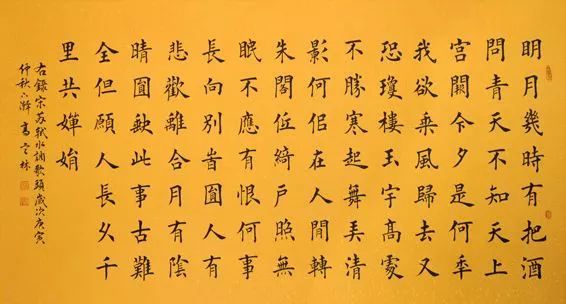 明月幾時有把酒
問青天不知天上
宮闕今夕是何秊
我欲乘風歸去又
恐瓊樓玉宇高處
不勝寒起舞弄清
影何佀在人間轉
朱閣低綺戶照無
眠不應有恨何事
長向別旹圓人有
悲歡離合月有陰
晴圓缺此事古難
全但願人長久千
里共嬋娟
右錄宋蘇軾水調歌頭歲次庚寅
仲秋 高 林